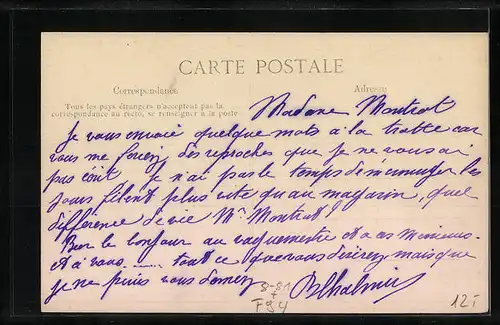 CARTE POSTALE
Correspondance
Adresse
Tous les pays étrangers n'acceptent pas la
correspondance au recto, se renseigner à la poste
Madame Montrat
Je vous envoie quelque mots à la hatte car
vous me feriez des reproches que je ne vous ai
pas écrit Je n'ai pas le temps de m'ennuyer les
jours filent plus vite qu'au magasin, quel
différence de vie Mme Montrat!
Bon le bonjour au vaguemestre et a ces
et à vous ..... tout ce que vous désirez, mais que
je ne puis vous donner
3-81
+
F 84
12 I